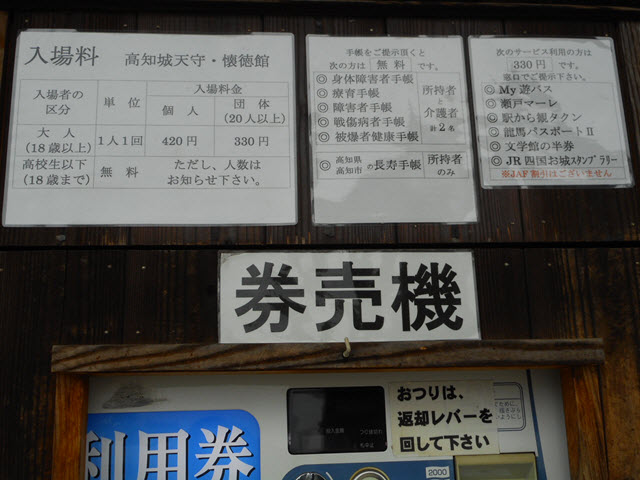 入場料 高知城天守・懐徳館
入場者の区分 単位 入場料金
個人 団体(20人以上)
大人(18歳以上) 1人1回 420円 330円
高校生以下(18歳まで) 無料 ただし、人数はお知らせ下さい。
手帳をご提示頂くと
次の方は 無料 です。
◎身体障害者手帳
◎療育手帳
◎障害者手帳
◎戦傷病者手帳
◎被爆者健康手帳
所持者と介護者計2名
◎高知県高知市の長寿手帳 所持者のみ
次のサービス利用の方は
330円 です。
窓口でご提示下さい。
◎My遊バス
◎瀬戸マーレ
◎駅から観タクン
◎龍馬パスポートⅡ
◎文学館の半券
◎JR四国お城スタンプラリー
※JAF割引はございません
券売機
利用券
おつりは、
返却レバーを
回して下さい
2000